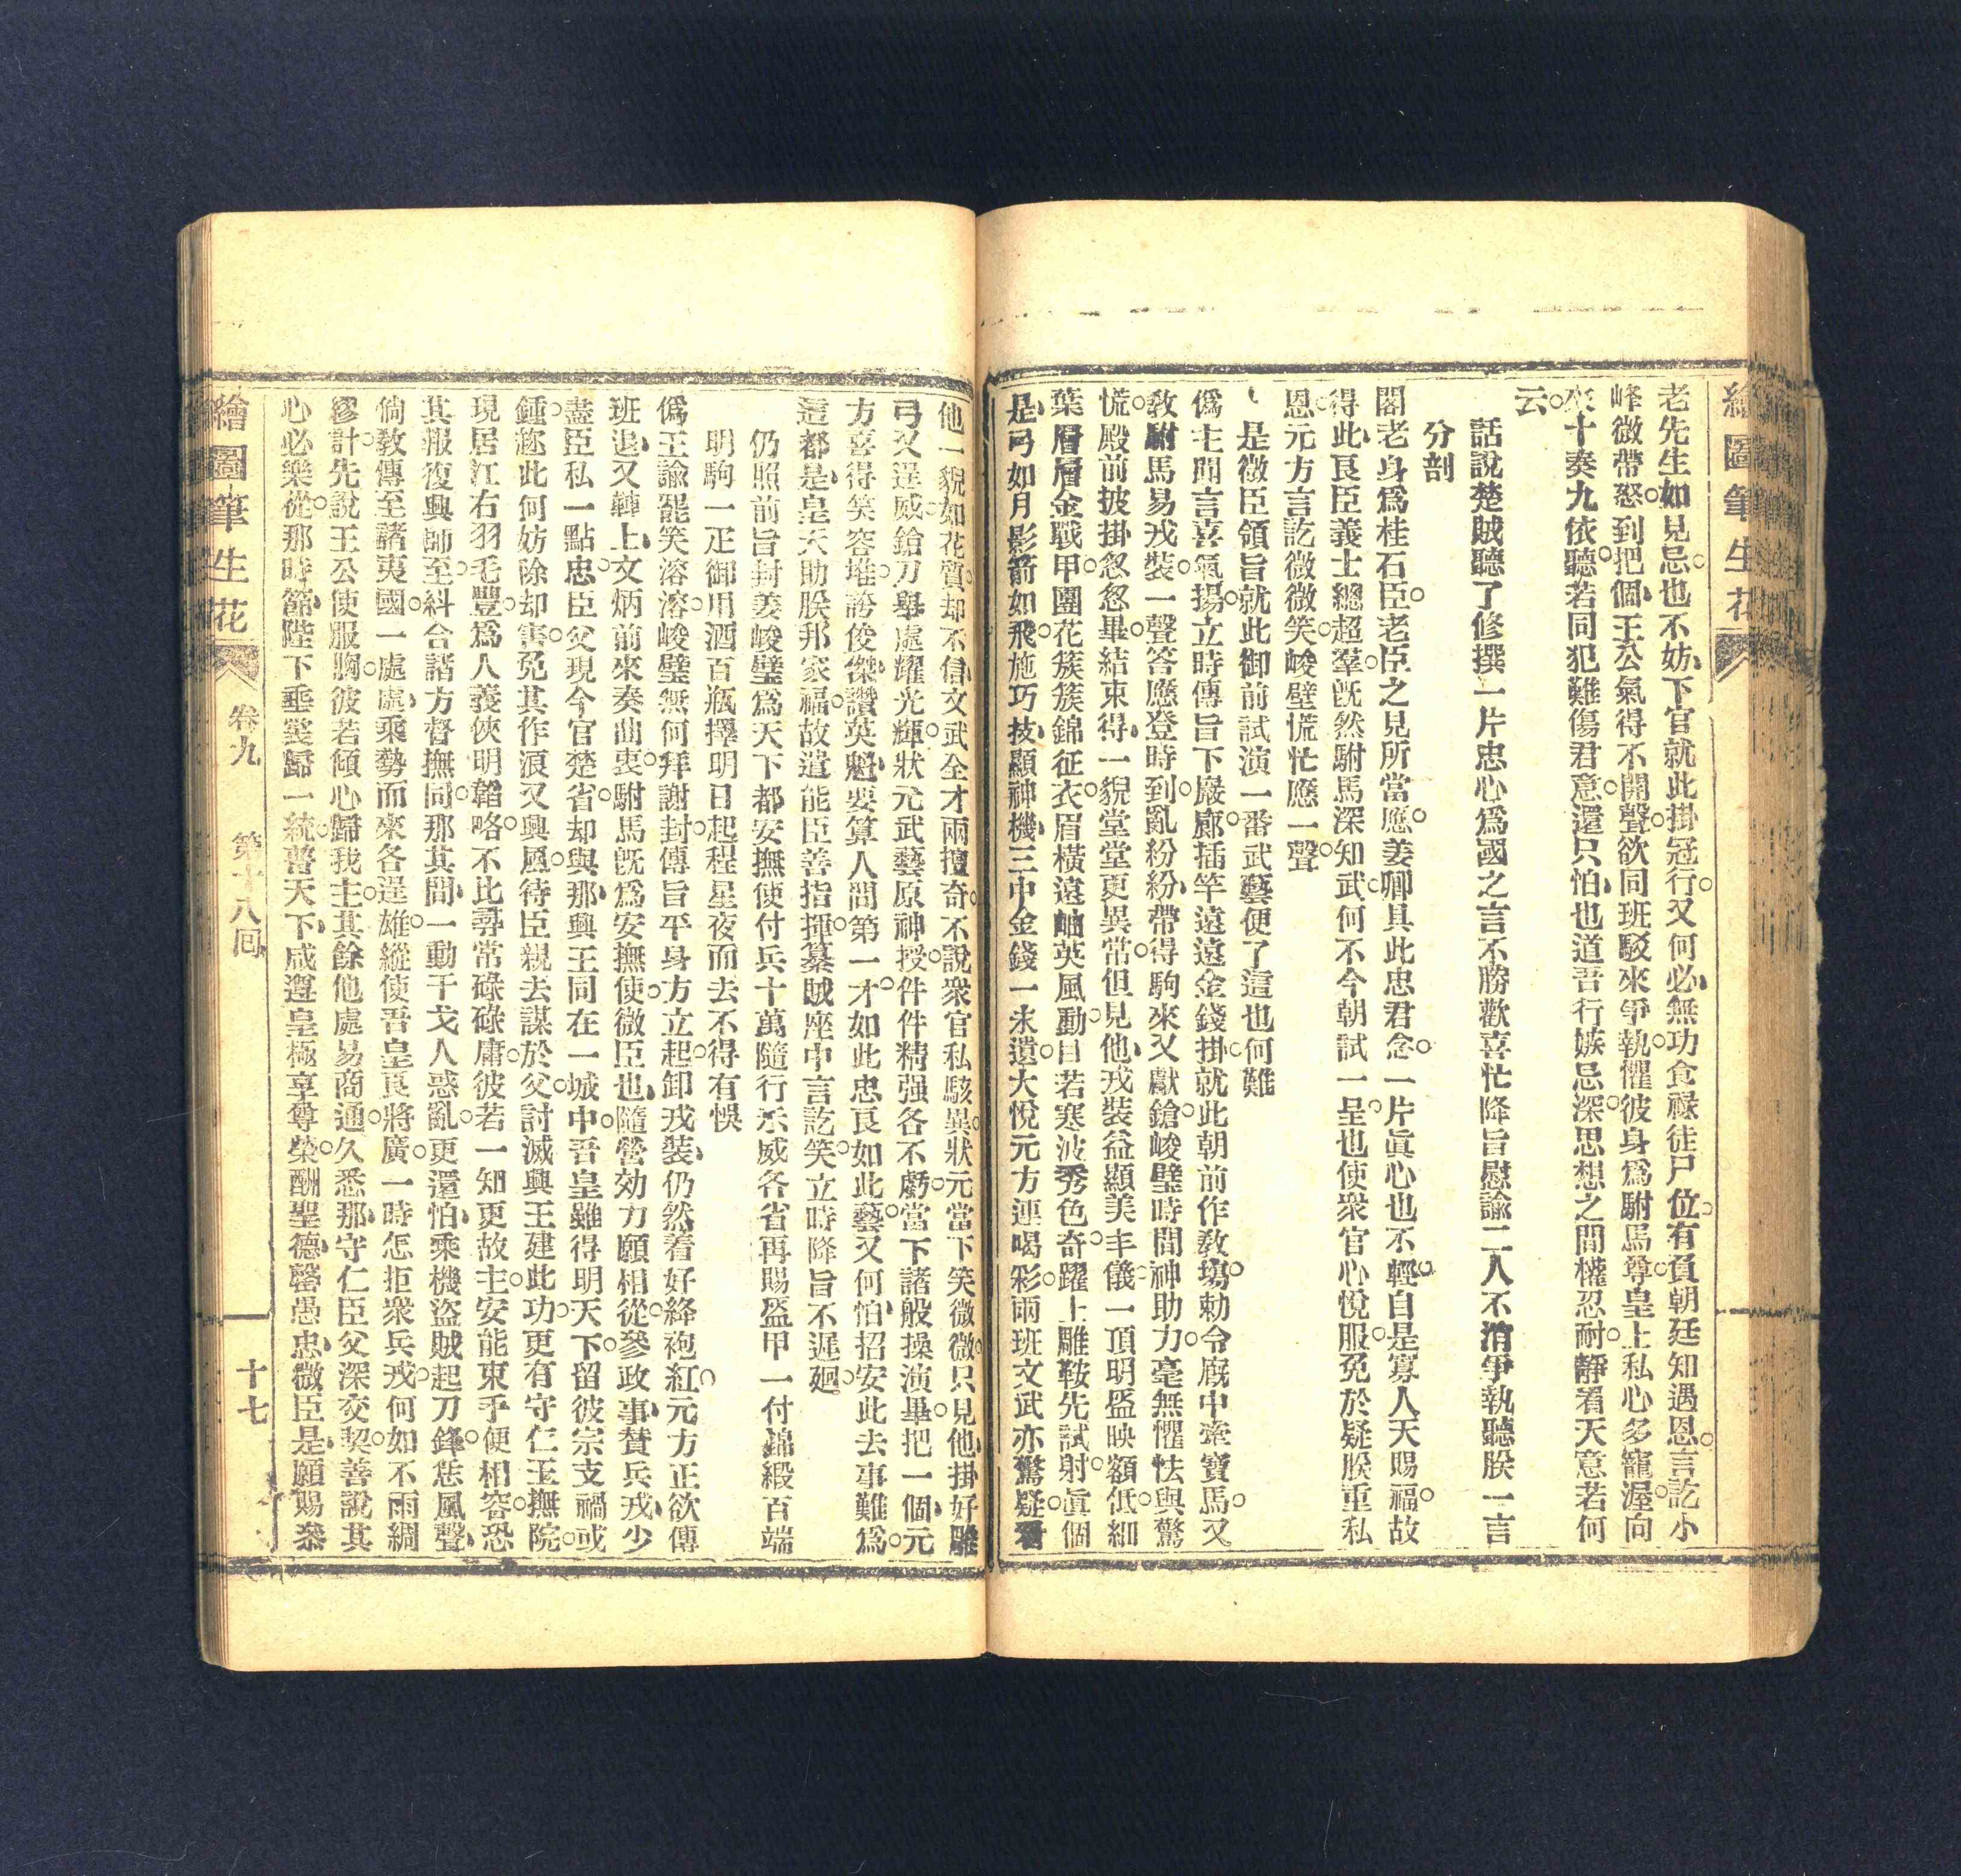 繪圖筆生花
老先生如見忌也不妨下官就此掛冠行又何必無功食祿徒尸位有負朝廷知遇恩言訖小
峰微帶怒到把個王公氣得不開聲欲同班駁來爭執懼彼身爲駙馬尊皇上私心多寵渥向
來十奏九依聽若同犯難傷君意還只怕也道吾行嫉忌深思想之間權忍耐靜看天意若何
云
話說楚賊聽了修撰一片忠心爲國之言不勝歡喜忙降旨慰諭二人不消爭執聽朕一言
分剖
閣老身爲柱石臣老臣之見所當應姜卿具此忠君念一片眞心也不輕自是寡人天賜福故
得此良臣義士總超羣既然駙馬深知武何不今朝試一呈也使衆官心悅服免於疑朕重私
恩元方言訖微微笑峻壁慌忙應一聲
是微臣領旨就此御前試演一番武藝便了這也何難
僞主聞言喜氣揚立時傳旨下嚴廊插竿遠遠金錢掛就此朝前作教塲勅令廐中牽寶馬又
敎駙馬易戎裝一聲答應登時到亂紛紛帶得駒來又獻鎗峻璧時間神助力毫無懼怯與驚
慌殿前披掛忽忽畢結束得一貌堂堂更異常但見他戎裝益顯美丰儀一頂明盔映額低細
葉層層金戰甲團花簇簇錦征衣眉橫遠岫英風動目若寒波秀色奇躍上雕鞍先試射眞個
是弓如月影箭如飛施巧技顯神機三中金錢一未遺大悅元方連喝彩兩班文武亦驚疑看
他一貌如花質却不信文武全才兩擅奇不說衆官私駭異狀元當下笑微微只見他掛好雕
弓又逞威鎗刀舉處耀光輝狀元武藝原神授件件精强各不虧當下諸般操演畢把一個元
方喜得笑容堆誇俊傑讚英魁要算人間第一才如此忠良如此藝又何怕招安此去事難爲
這都是皇天助朕邦家福故遣能臣善指揮纂賊座中言訖笑立時降旨不遲廻
仍照前旨封姜峻璧爲天下都安撫使付兵十萬隨行示威各省再賜盔甲一付錦緞百端
明駒一疋御用酒百瓶擇明日起程星夜而去不得有悞
僞王諭罷笑溶溶峻璧無何拜謝封傳旨平身方立起卸戎裝仍然着好絳袍紅元方正欲傳
班退又轉上文炳前來奏曲衷駙馬既爲安撫使微臣也隨營効力願相從參政事賛兵戎少
盡臣私一點忠臣父現今官楚省却與那興王同在一城中吾皇雖得明天下留彼宗支禍或
鍾您此何妨除却害免其作浪又興風待臣親去謀於父討滅興王建此功更有守仁王撫院
現居江右羽毛豐爲人義俠明韜略不比尋常碌碌庸彼若一知更故主安能束手便相容恐
其報復興師至糾合諸方督撫同那其間一動干戈人惑亂更還怕乘機盜賊起刀鋒恁風聲
倘敎傳至諸夷國一處處乘勢而來各逞雄縱使吾皇良將廣一時怎拒衆兵戎何如不雨綢
繆計先說王公使服胸彼若傾心歸我主其餘他處易商通久悉那守仁臣父深交契善說其
心必樂從那時節陛下垂裳歸一統普天下咸遵皇極享尊榮酬聖德罄愚忠微臣是願賜叅
繪圖筆生花
卷九
第十八囘
十七